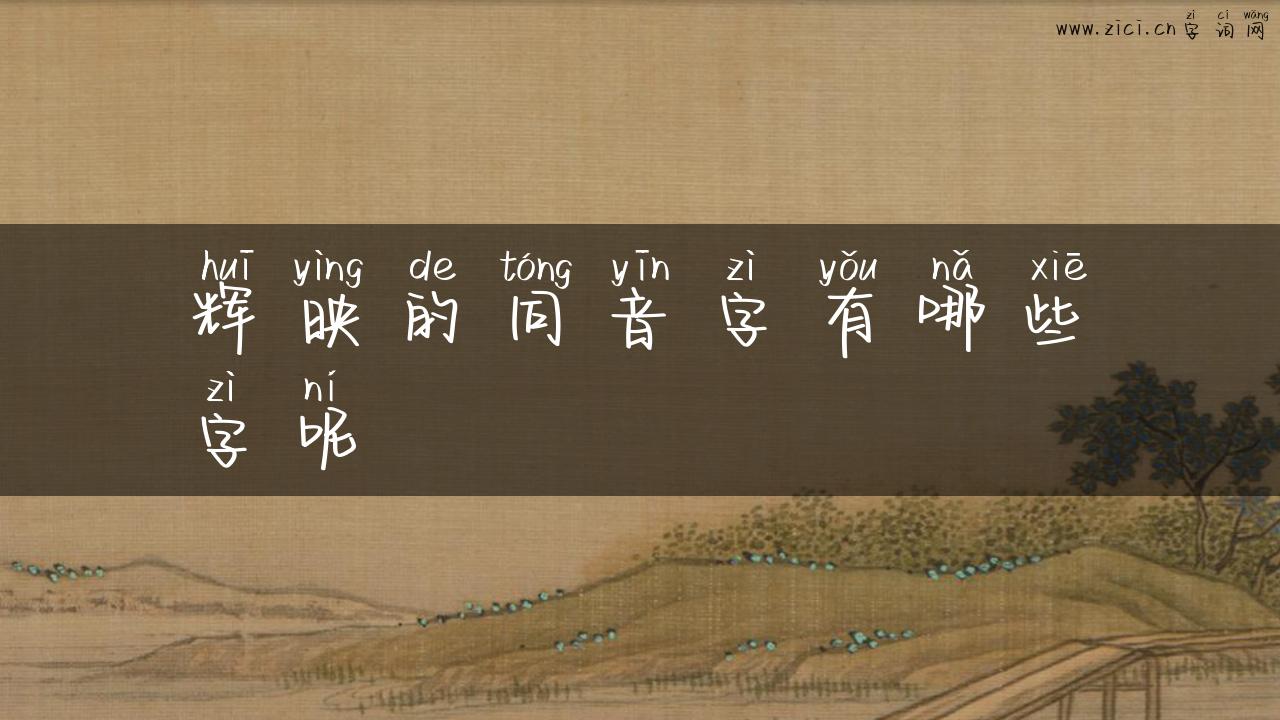 zì cí wǎng
www.zici.cn 字词网
huī yìng de tóng yīn zì yǒu nǎ xiē
辉映的同音字有哪些
zì ní
字呢